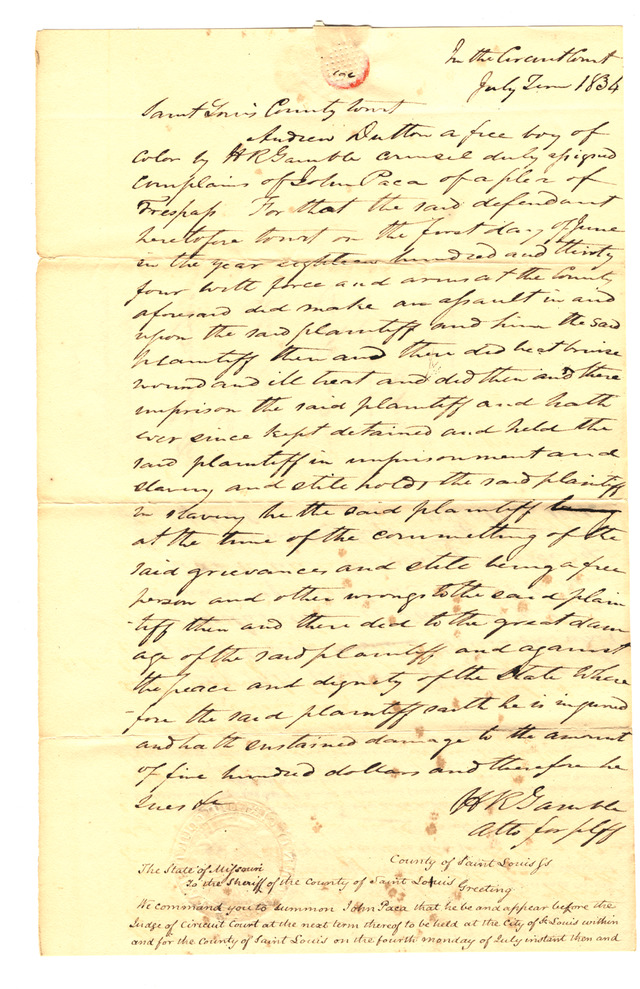 In the Circuit Court
July Term 1834
Saint Louis County towit
Andrew Dutton a free boy of
color by H R Gamble counsel duly assigned
complains of John Paca of a plea of
Trespass For that the said defendant
heretofore towit on the first day of June
in the year eighteen hundred and thirty
four with force and arms at the County
aforesaid did make an assault in and
upon the said plaintiff and him the said
plaintiff then and there did beat bruise
wound and ill treat and did then and there
imprison the said plaintiff and hath
ever since kept detained and held the
said plaintiff in imprisonment and
slavery and still holds the said plaintiff
in slavery he the said plaintiff being
at the time of the committing of the
said grievances and still being a free
person and other wrongs to the said plain
-tiff then and there did to the great dam
age of the said plaintiff and against
the peace and dignity of the State Where
-fore the said plaintiff saith he is injured
and hath sustained damage to the amount
of five hundred dollars and therefore he
sues &c
H R Gamble
Atto for plff
County of Saint Louis Ss
The State of Missouri
To the Sheriff of the County of Saint Louis Greeting
We command you to summon John Paca that he be and appear before the
Judge of Circuit Court at the next term thereof to be held at the City of St Louis within
and for the County of Saint Louis on the fourth monday of July instant then and